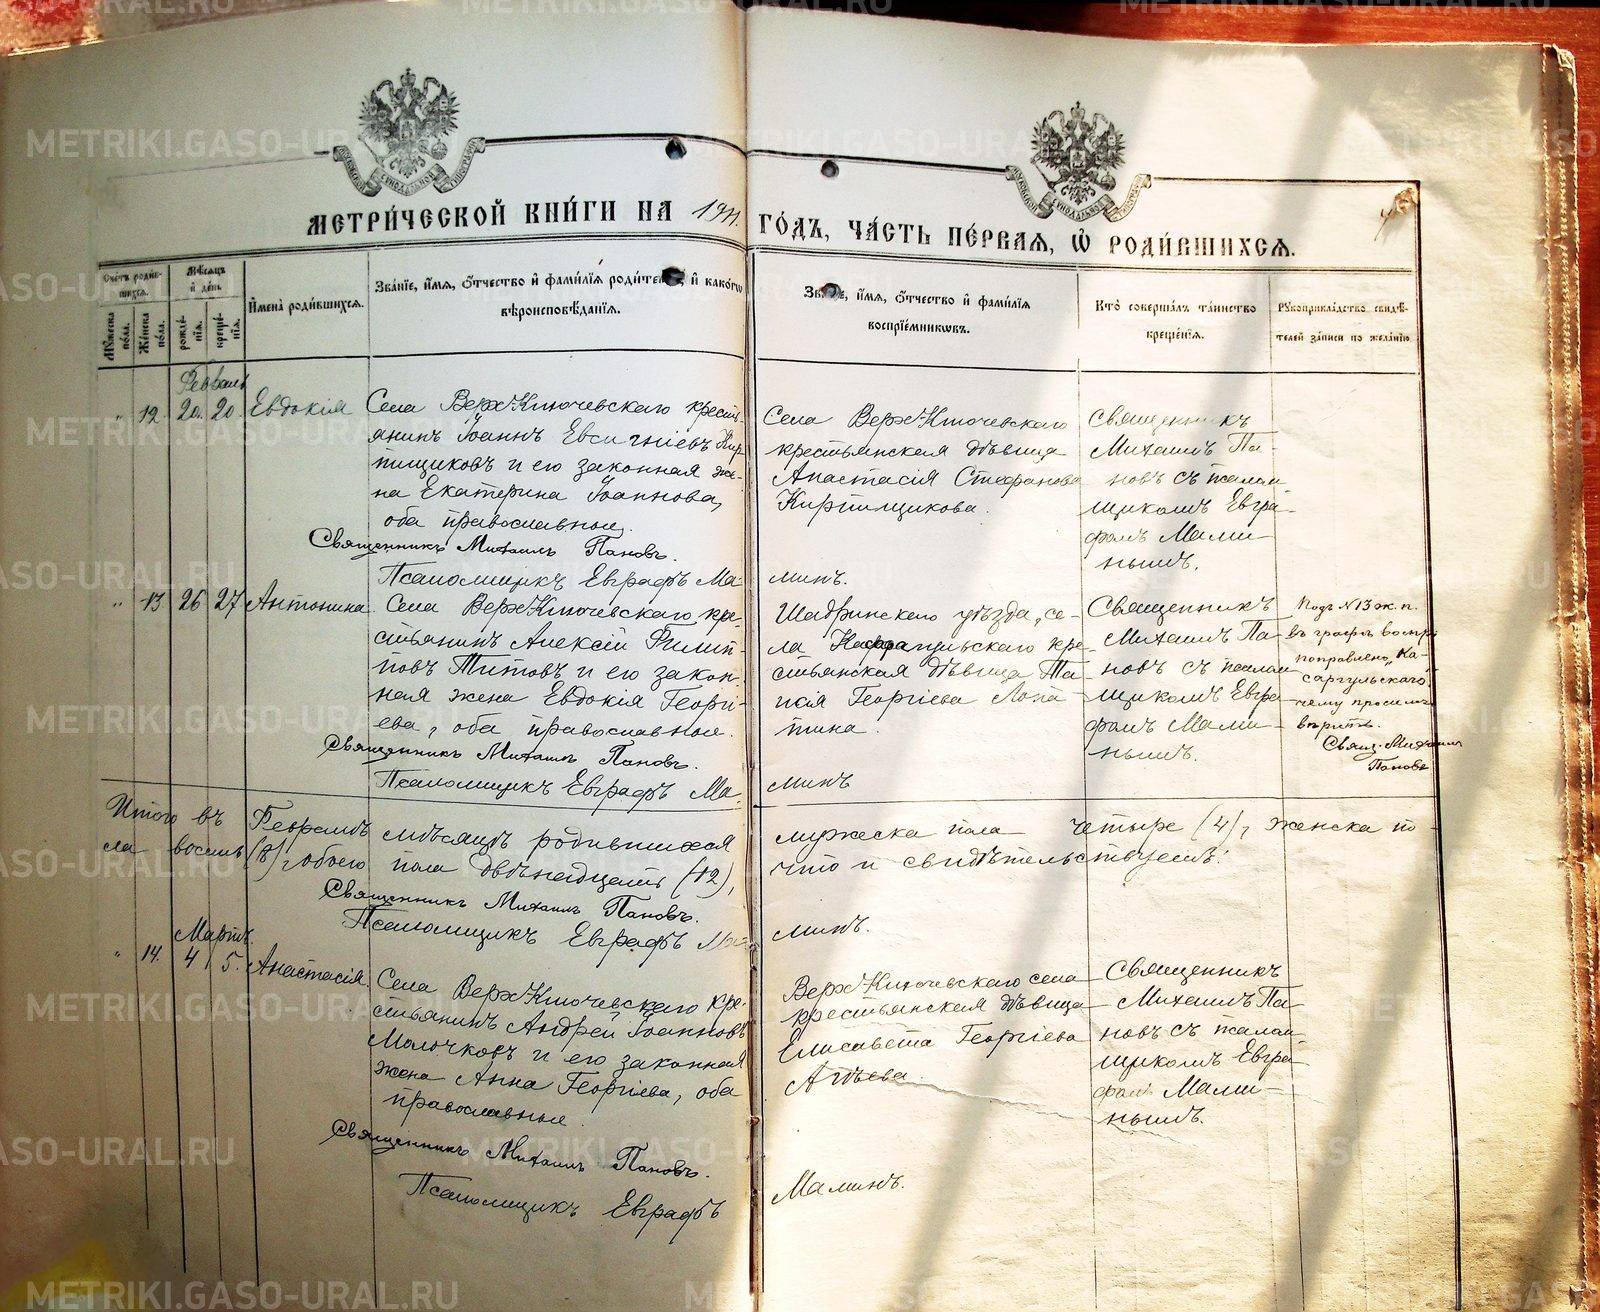 МЕТРИ́ЧЕСКОЙ КНИ́ГИ НА 1911 ГО́ДЪ, ЧА́СТЬ ПЕ́РВАЯ, Ѿ РОДИ́ВШИХСЯ.
Счетъ роди́вшихся.
Мѣсяцъ и день
Мужеска пола.
Женска пола.
рождѐнія.
крещѐнія.
Имена̀ роди́вшихся.
Зва́ніе, и́мя, о́тчество и фами́лія роди́телей, и како́го
вѣроисповѣ́данія.
Зва́ніе, и́мя, о́тчество и фами́лія
воспріе́мниковъ.
Кто̀ соверша́лъ та́инство
креще́нія.
Рукоприкла́дство свидѣ́-
телей за́писи по жела́нію.
Февраль
" 12. 20. 20. Евдокія
Села ВерхКлючевскаго кресть-
янинъ Іоаннъ Евсигніевъ Кир-
пищиковъ и его законная же-
на Екатерина Іоаннова,
оба православные.
Священникъ Михаилъ Пановъ.
Псаломщикъ Евграфъ Ма-
Села ВерхКлючевскаго
крестьянская дѣвица
Анастасія Стефанова
Кирпищикова.
минъ.
Священникъ
Михаилъ Па-
новъ съ псалом-
щикомъ Евгра-
фомъ Мами-
нымъ.
" 13 26 27 Антонина
Села ВерхКлючевскаго кре-
стьянинъ Алексій Филип-
повъ Титовъ и его закон-
ная жена Евдокія Георгі-
ева, оба православные.
Священникъ Михаилъ Пановъ.
Псаломщикъ Евграфъ Ма-
Шадринскаго уѣзда, се-
ла Касаргульскаго кре-
стьянская дѣвица Та-
исія Георгіева Лопа-
тина.
минъ
Священникъ
Михаилъ Па-
новъ съ псалом-
щикомъ Евгра-
фомъ Мами-
нымъ.
Подъ №13 ж. п.
въ графѣ воспр.
поправлено „Ка-
саргульскаго"
чему просимъ
вѣрить.
Свящ. Михаилъ
Пановъ
Итого въ Февралѣ мѣсяцѣ родившихся мужеска пола четыре (4), женска по-
ла восемь (8), обоего пола двѣнадцать (12), что и свидѣтельствуемъ:
Священникъ Михаилъ Пановъ.
Псаломщикъ Евграфъ Ма-
минъ.
Мартъ.
" 14. 4 5. Анастасія.
Села ВерхКлючевскаго кре-
стьянинъ Андрей Іоанновъ
Молочковъ и его законная
жена Анна Георгіева, оба
православные.
Священникъ Михаилъ Пановъ.
Псаломщикъ Евграфъ
ВерхКлючевскаго села
крестьянская дѣвица
Елисавета Георгіева
Агѣева.
Маминъ.
Священникъ
Михаилъ Па-
новъ съ псалом-
щикомъ Евгра-
фомъ Мами-
нымъ.
METRIKI.GASO-URAL.RU